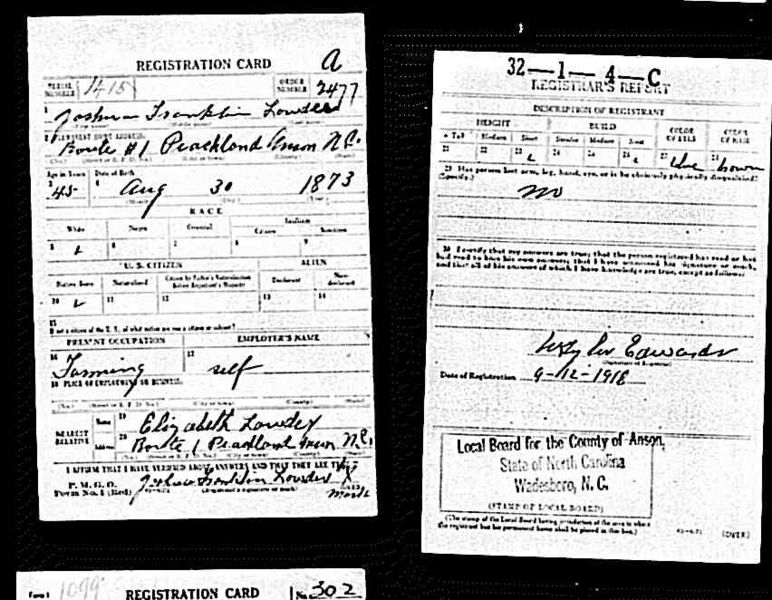 REGISTRATION CARD a
SERIAL NUMBER 1415 ORDER NUMBER 2477
1 Joshua Franklin Lowder
2 PERMANENT HOME ADDRESS:
Route #1 Peachland Union N.C.
Age in Years Date of Birth
3 45 4 Aug 30 1873
RACE
White Negro Oriental Indian
Citizen Noncitizen
5 6 7 8 9
U. S. CITIZEN ALIEN
Native Born Naturalized Citizen by Father's Naturalization Before Registrant's Majority Declarant Non-declarant
10 11 12 13 14
15
If not a citizen of the U. S., of what nation are you a citizen or subject?
PRESENT OCCUPATION EMPLOYER'S NAME
16 Farming 17 self
18 PLACE OF EMPLOYMENT OR BUSINESS:
(No.) (Street or R. F. D. No.) (City or town) (County) (State)
NEAREST RELATIVE Name 19 Elizabeth Lowder
Address 20 Route 1 Peachland Union N.C.
I AFFIRM THAT I HAVE VERIFIED ABOVE ANSWERS AND THAT THEY ARE TRUE
P. M. G. O.
Form No. 1 (Red) Joshua Franklin Lowder X his mark
(Registrant's signature or mark)
Form 1 1099 REGISTRATION CARD No. 302
32—1—4—C
REGISTRAR'S REPORT
DESCRIPTION OF REGISTRANT
HEIGHT BUILD COLOR OF EYES COLOR OF HAIR
Tall Medium Short Slender Medium Stout
21 22 23 24 25 26 27 blue 28 brown
29 Has person lost arm, leg, hand, eye, or is he obviously physically disqualified?
(Specify.) no
30 I certify that my answers are true; that the person registered has read or has
had read to him his own answers; that I have witnessed his signature or mark,
and that all of his answers of which I have knowledge are true, except as follows:
Edwards
(Signature of Registrar)
Date of Registration 9-12-1918
Local Board for the County of Anson,
State of North Carolina
Wadesboro, N. C.
(STAMP OF LOCAL BOARD)
(The stamp of the Local Board having jurisdiction of the area in which
the registrant has his permanent home shall be placed in this box.)
(OVER)